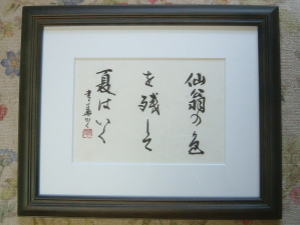 仙翁の色
を残して
夏はいく